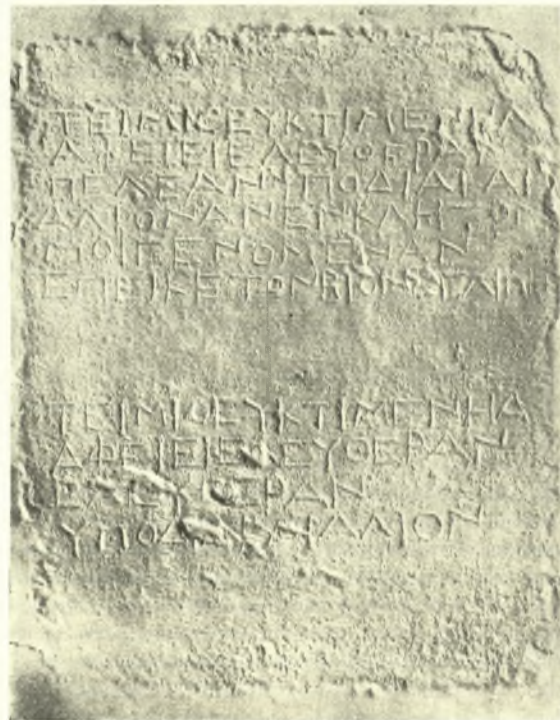 ΤΕΙΜΙΣΕΥΚΤΙΜΕΝΗΑ
ΑΦΕΙΕΙΕΛΕΥΘΕΡΑΝ
ΠΕΛΕΑΝΥΠΟΔΙΑΓΑΙ
ΑΛΙΟΝΑΝΕΝΚΛΗΤΟΝ
ΜΟΙΓΕΝΟΜΕΝΑΝ
ΕΠΕΙΚΕΤΟΝΒΙΟΝ
ΤΕΙΜΙΣΕΥΚΤΙΜΕΝΗΑ
ΑΦΕΙΕΙΕΛΕΥΘΕΡΑΝ
ΕΛΕΥΘΕΡΑΝ
ΥΠΟΔΙΑΓΑΝΑΛΙΟΝ